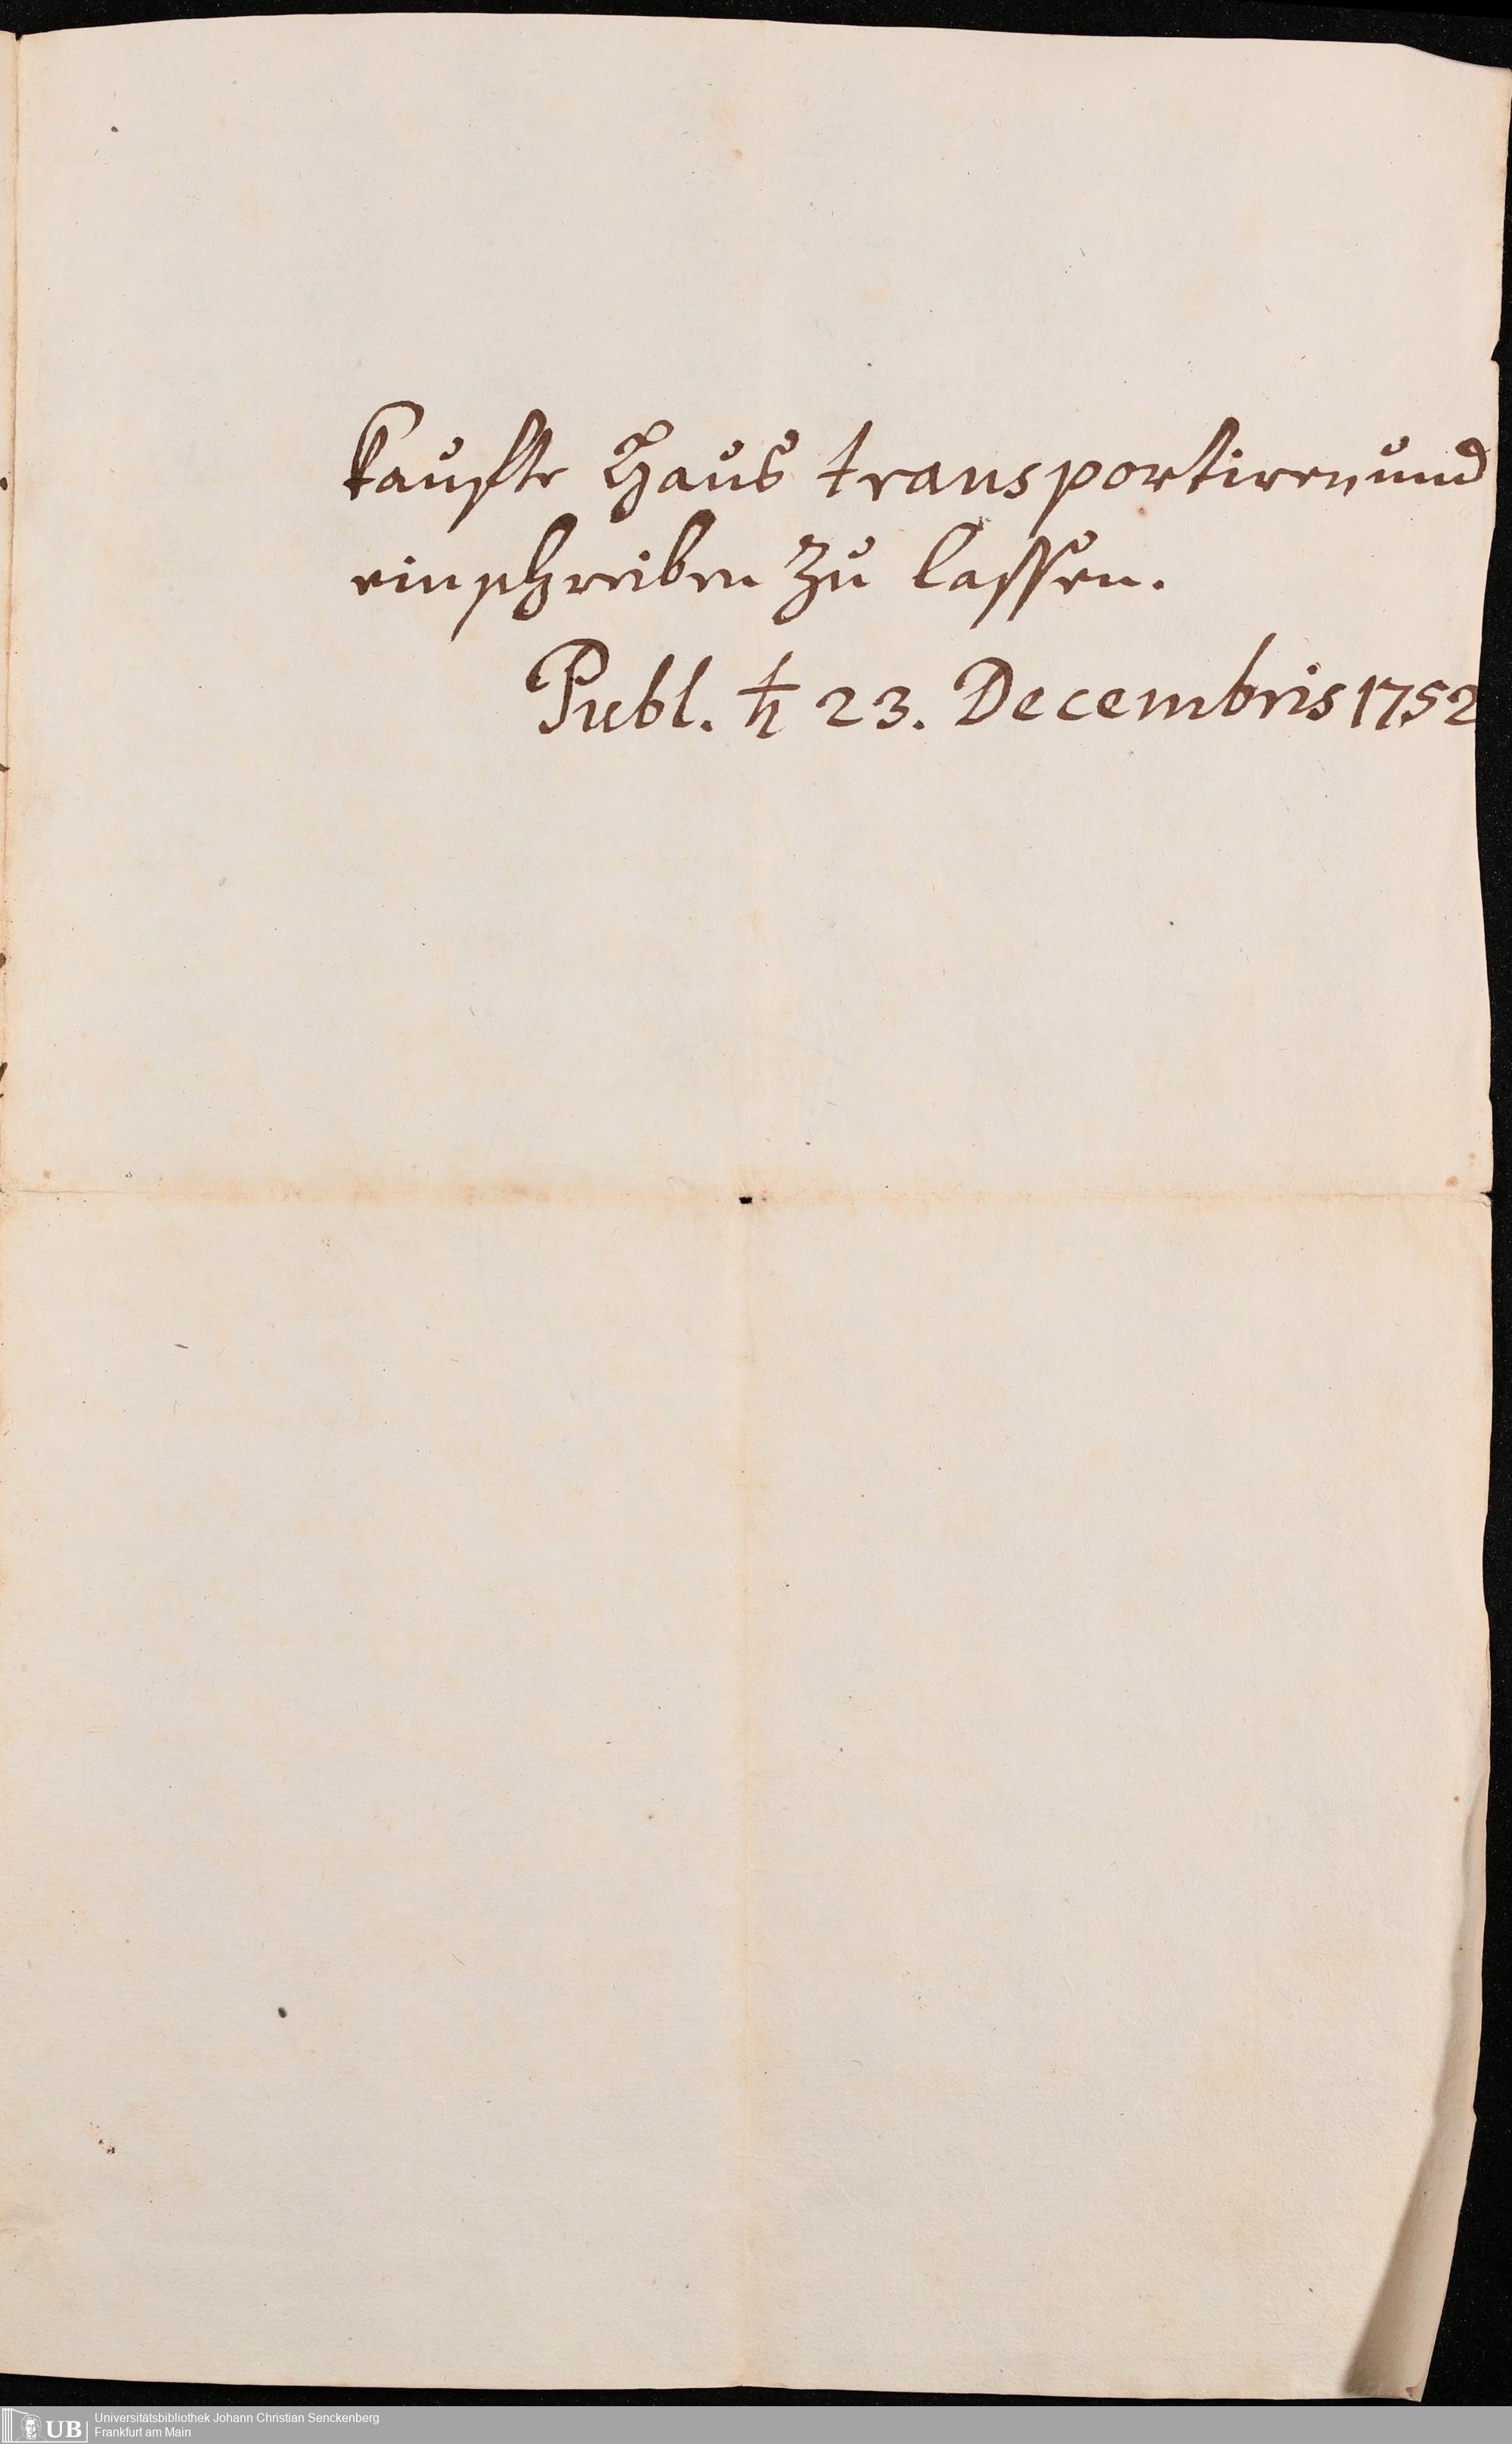 kaufte Haus transportiren und
einschreiben zu lassen.
Publ. ♄ 23. Decembris 1752
UB
Universitätsbibliothek Johann Christian Senckenberg
Frankfurt am Main